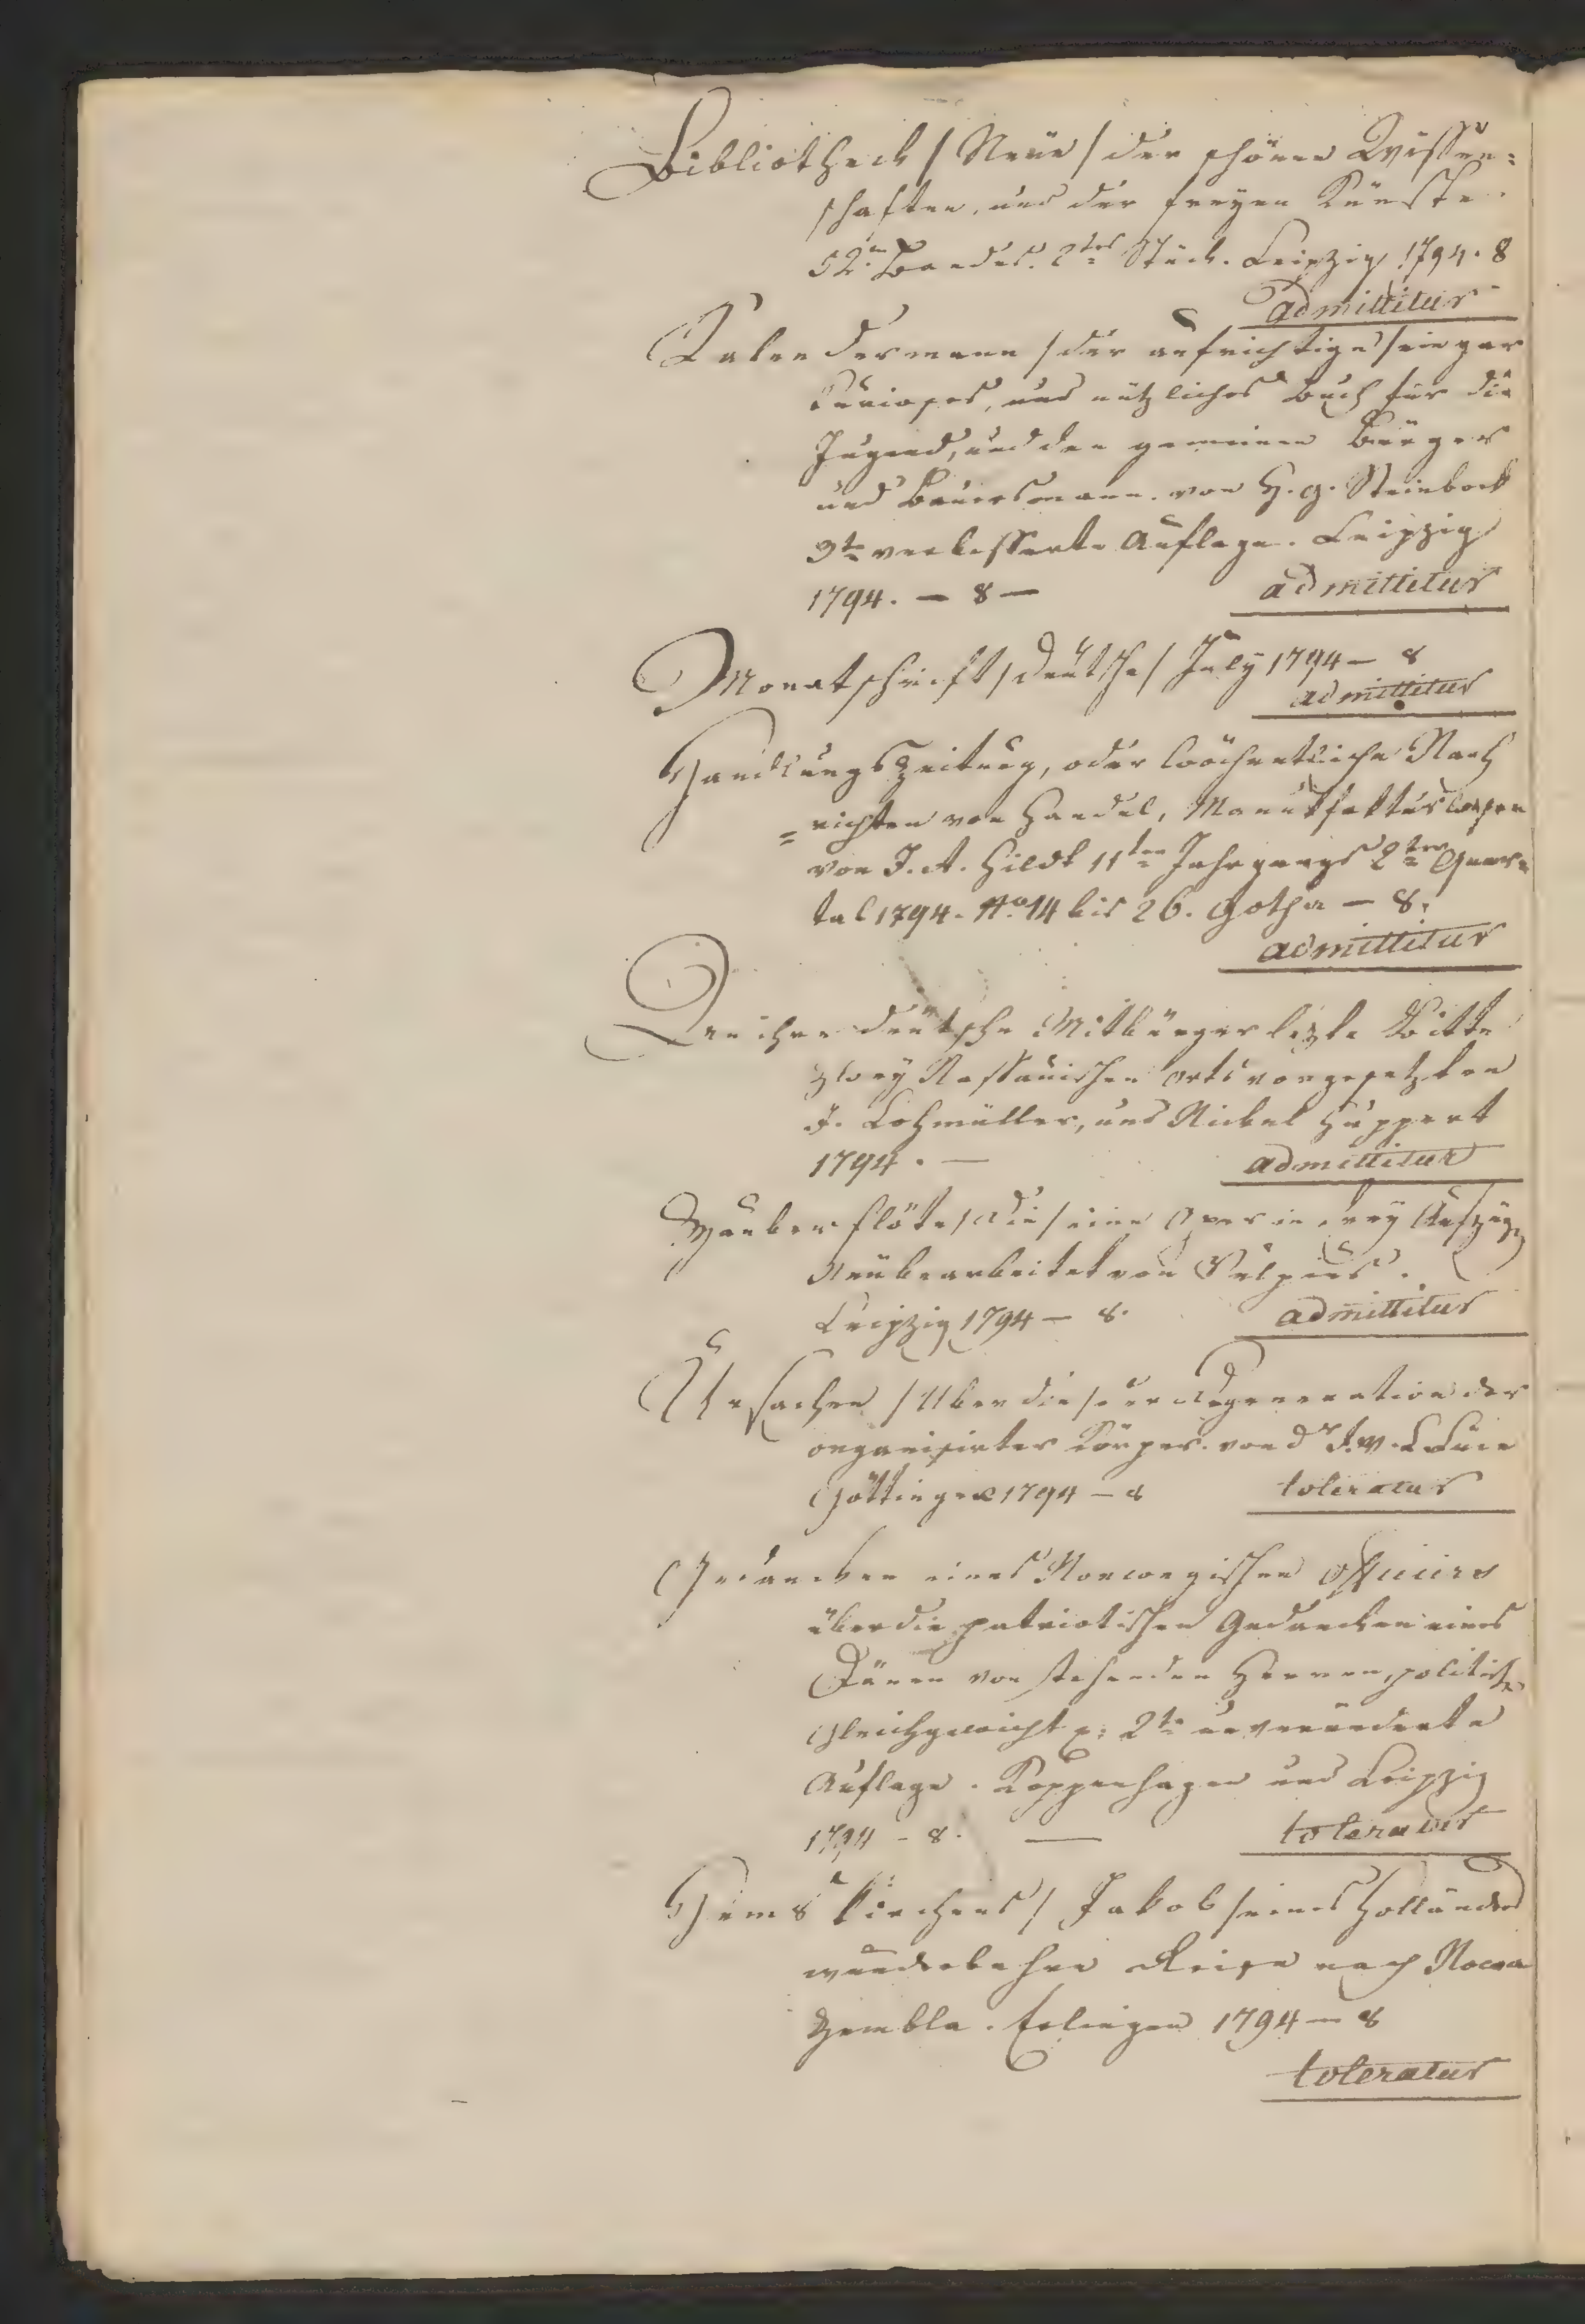 Bibliotheck /Neüe/ der schönen Wissen=
schaften, und der freyen Künste.
52.n Bandes. 2tes Stück. Leipzig 1794. 8
admittitur
Kalendermann /der aufrichtige/ ein gar
Curioses, und nützliches Buch für die
Jugend, und den gemeinen Bürger
und Bauersmann. von H. G. Steinbeck
3te verbesserte Auflage. Leipzig
1794. — 8 — admittitur
Monatschrift /deutsche/ July 1794 — 8
admittitur
Handlungszeitung, oder wöchentliche Nach
=richten von Handel, Manufakturwesen
von J. A. Hildt 11ten Jahrgangs 2tes Quar=
tal 1794. No. 14 bis 26. Gotha — 8.
admittitur
An ihre deutsche Mitbürger lezte Bitte
zwey Nassauischen Ortsvorgesetzten
J. Lohmüller, und Nickel Huppert
1794. — admittitur
Zauberflöte /die/ eine Oper in drey Aufzüg
Neübearbeitet von Vulpius.
Leipzig 1794 — 8. admittitur
Ursachen /Über die/ der Degeneration der
organisirter Körper. von Dr
Göttingen 1794 — 8 toleratur
Gedancken eines Norwegischen Officiers
über die patriotischen Gedancken eines
Dänen von stehenden Heeren, politisch
Gleichgewicht p: 2te unveränderte
Auflage. Koppenhagen und Leipzig
1794 – 8. — toleratur
Hemskirchens / Jakob / eines Holländers
wunderbahre Reise nach Nova
Zembla. Erlangen 1794 — 8
toleratur